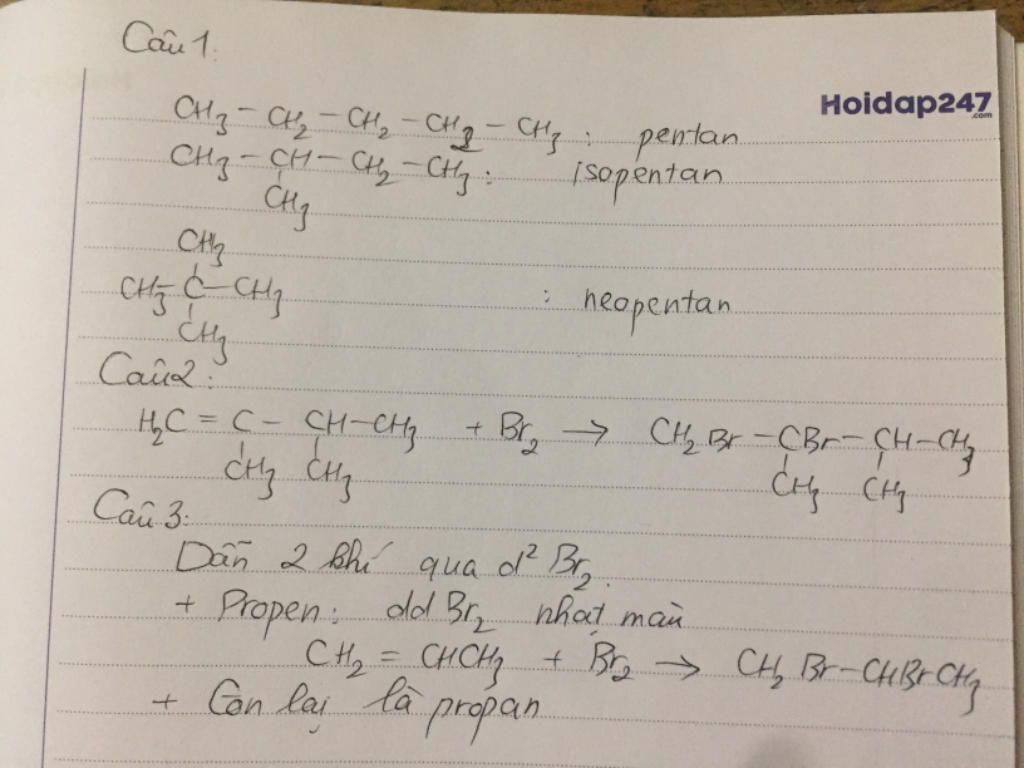 Câu 1.
Hoidap247
.com
CH3 – CH2 – CH2 – CH2 – CH3 : pentan
CH3 – CH – CH2 – CH3 : isopentan
CH3
CH3
CH3 – C – CH3 : neopentan
CH3
Câu 2 :
H2C = C – CH – CH3 + Br2 → CH2 Br – CBr – CH – CH3
CH3 CH3 CH3 CH3
Câu 3:
Dẫn 2 khí qua d² Br2.
+ Propen : dd Br2 nhạt màu
CH2 = CHCH3 + Br2 → CH2 Br – CHBr CH3
+ Còn lại là propan